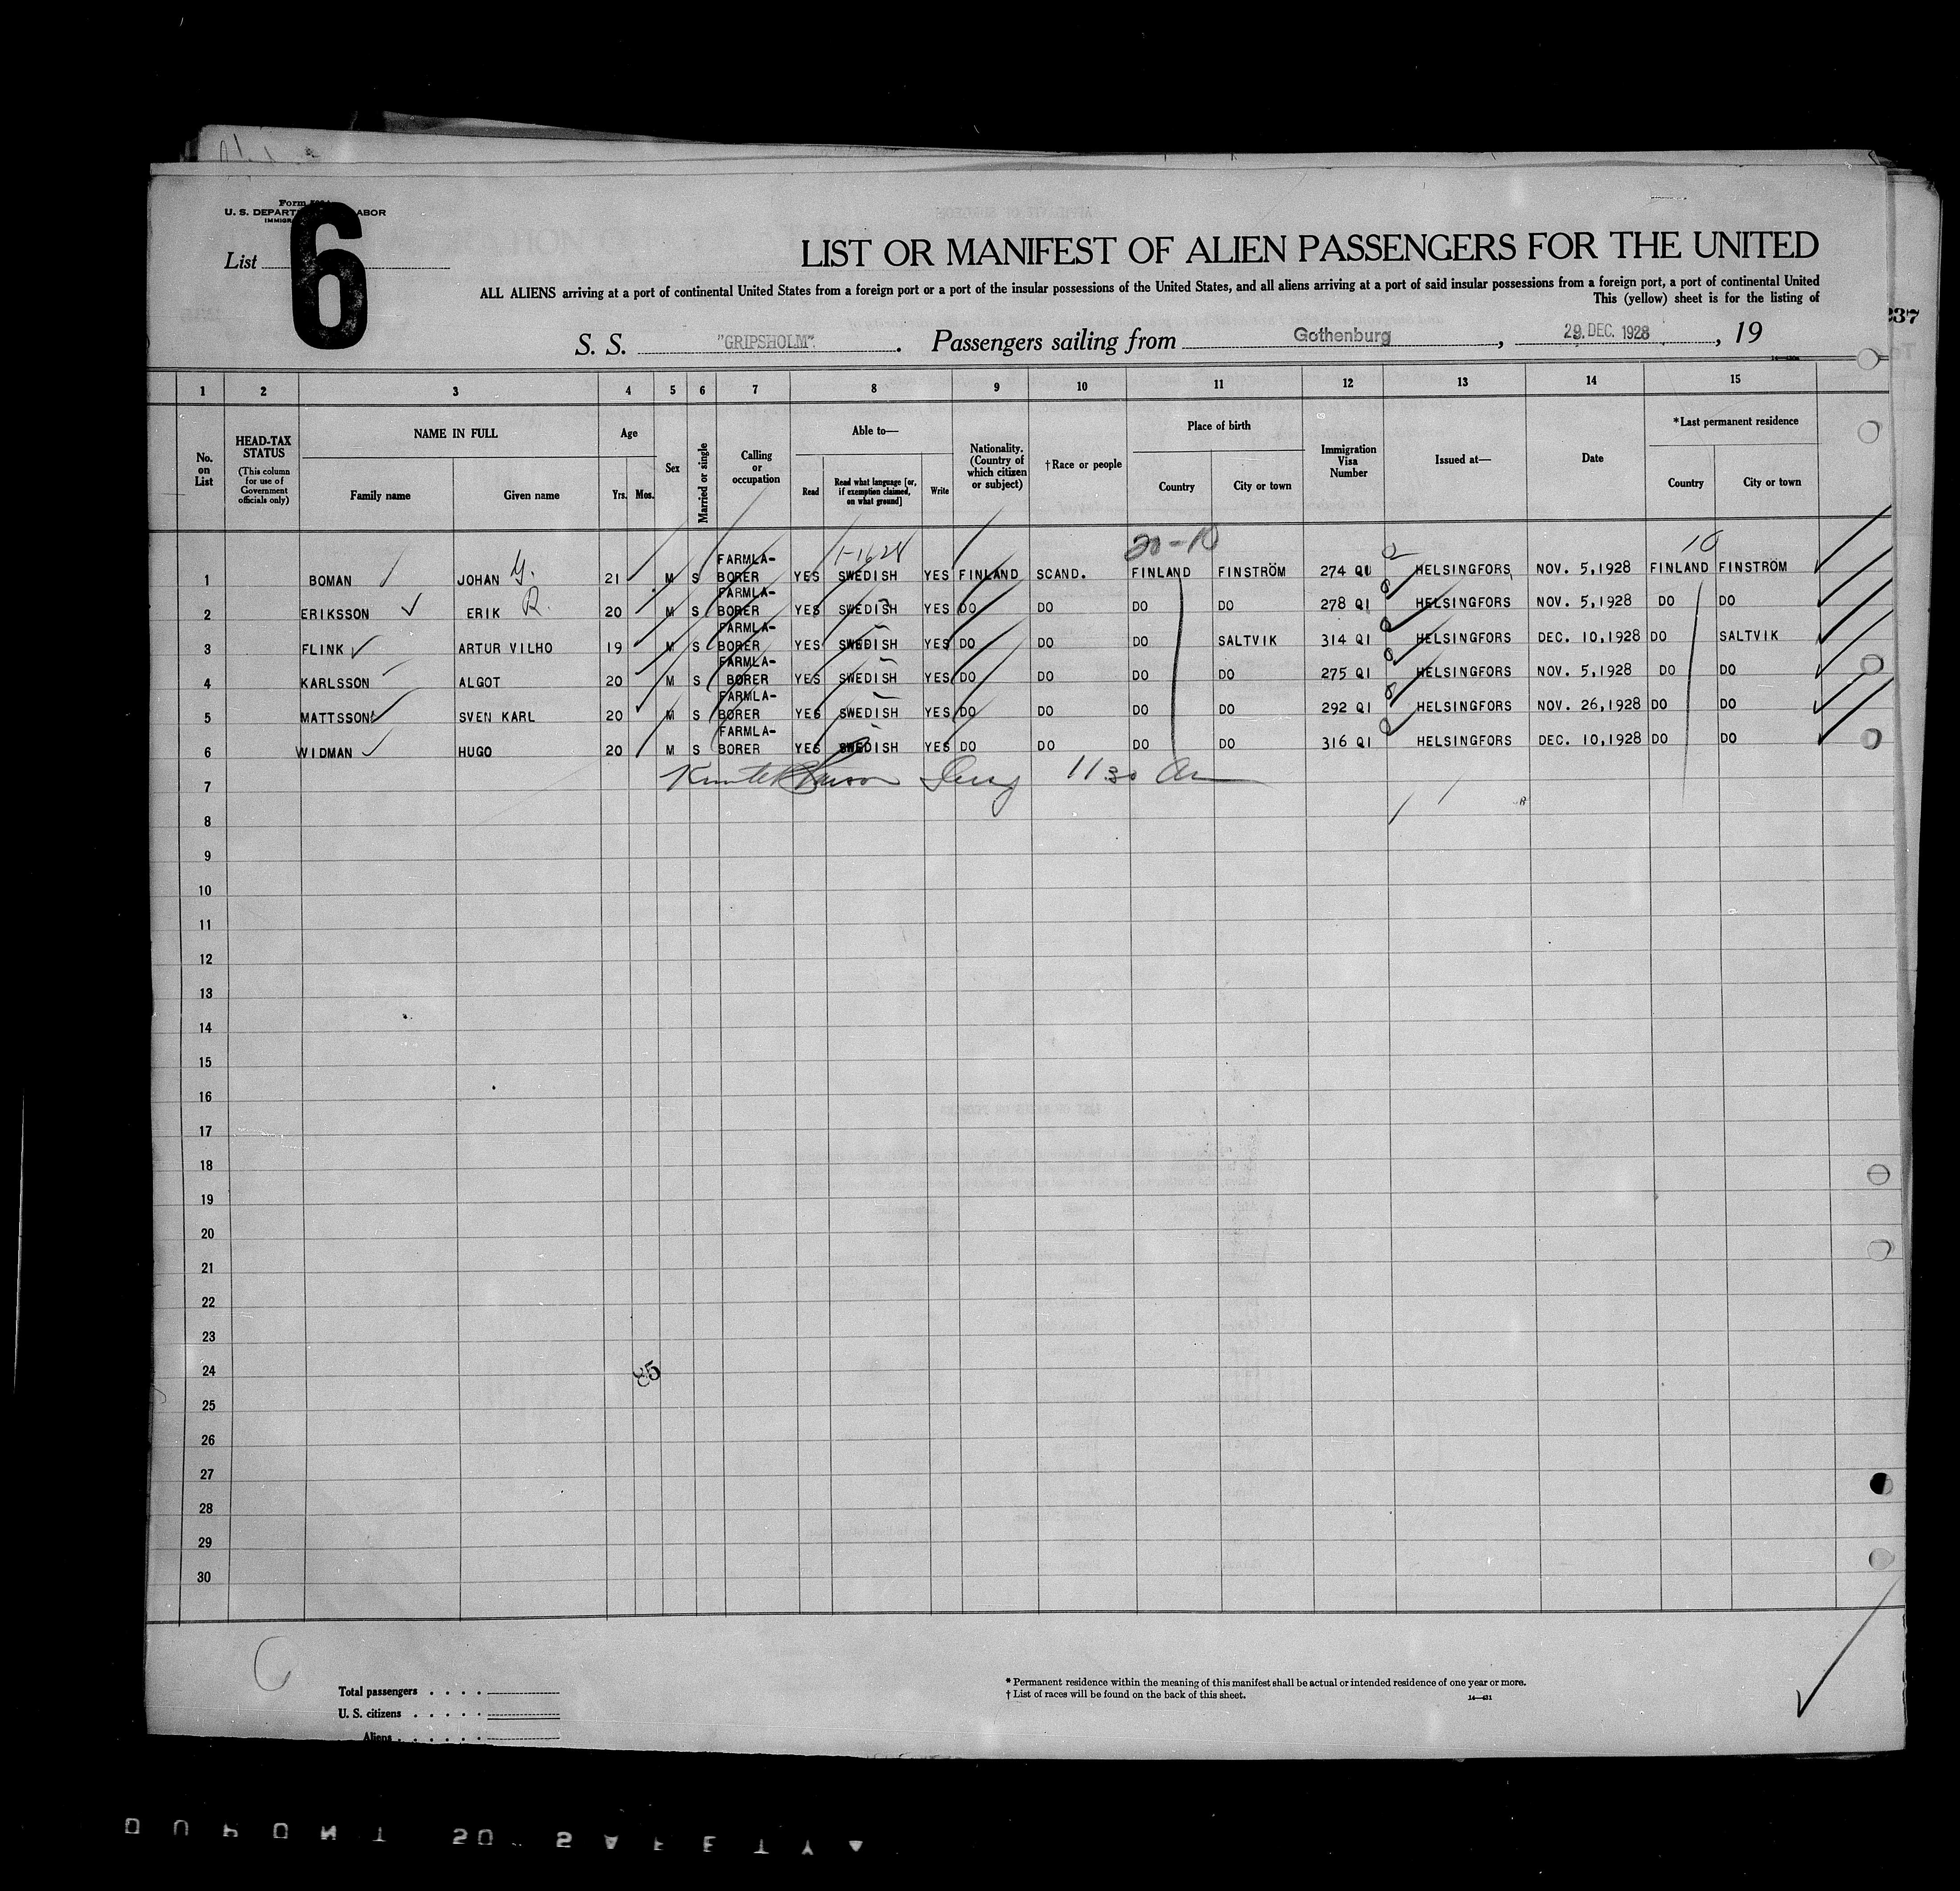 Form
U. S. DEPART ABOR
IMMIGR
6
List
LIST OR MANIFEST OF ALIEN PASSENGERS FOR THE UNITED
ALL ALIENS arriving at a port of continental United States from a foreign port or a port of the insular possessions of the United States, and all aliens arriving at a port of said insular possessions from a foreign port, a port of continental United
This (yellow) sheet is for the listing of
237
S. S. "GRIPSHOLM". Passengers sailing from Gothenburg, 29. DEC. 1928, 19
1 2 3 4 5 6 7 8 9 10 11 12 13 14 15
No. on List
HEAD-TAX STATUS (This column for use of Government officials only)
NAME IN FULL Family name Given name
Age Yrs. Mos.
Sex
Married or single
Calling or occupation
Able to— Read Read what language [or, if exemption claimed, on what ground] Write
Nationality. (Country of which citizen or subject)
†Race or people
Place of birth Country City or town
Immigration Visa Number
Issued at—
Date
*Last permanent residence Country City or town
20-10 10
1 BOMAN JOHAN Y. 21 M S FARMLA-BORER YES SWEDISH YES FINLAND SCAND. FINLAND FINSTRÖM 274 QI HELSINGFORS NOV. 5,1928 FINLAND FINSTRÖM
2 ERIKSSON ERIK R. 20 M S FARMLA-BORER YES SWEDISH YES DO DO DO DO 278 QI HELSINGFORS NOV. 5,1928 DO DO
3 FLINK ARTUR VILHO 19 M S FARMLA-BORER YES SWEDISH YES DO DO DO SALTVIK 314 QI HELSINGFORS DEC. 10,1928 DO SALTVIK
4 KARLSSON ALGOT 20 M S FARMLA-BORER YES SWEDISH YES DO DO DO DO 275 QI HELSINGFORS NOV. 5,1928 DO DO
5 MATTSSON SVEN KARL 20 M S FARMLA-BORER YES SWEDISH YES DO DO DO DO 292 QI HELSINGFORS NOV. 26,1928 DO DO
6 WIDMAN HUGO 20 M S FARMLA-BORER YES SWEDISH YES DO DO DO DO 316 QI HELSINGFORS DEC. 10,1928 DO DO
7 11 30 am
8
9
10
11
12
13
14
15
16
17
18
19
20
21
22
23
24
25
26
27
28
29
30
Total passengers . . . .
U. S. citizens . . . . .
Aliens . . . . . .
* Permanent residence within the meaning of this manifest shall be actual or intended residence of one year or more.
† List of races will be found on the back of this sheet.
14—431
DUPONT SAFETY